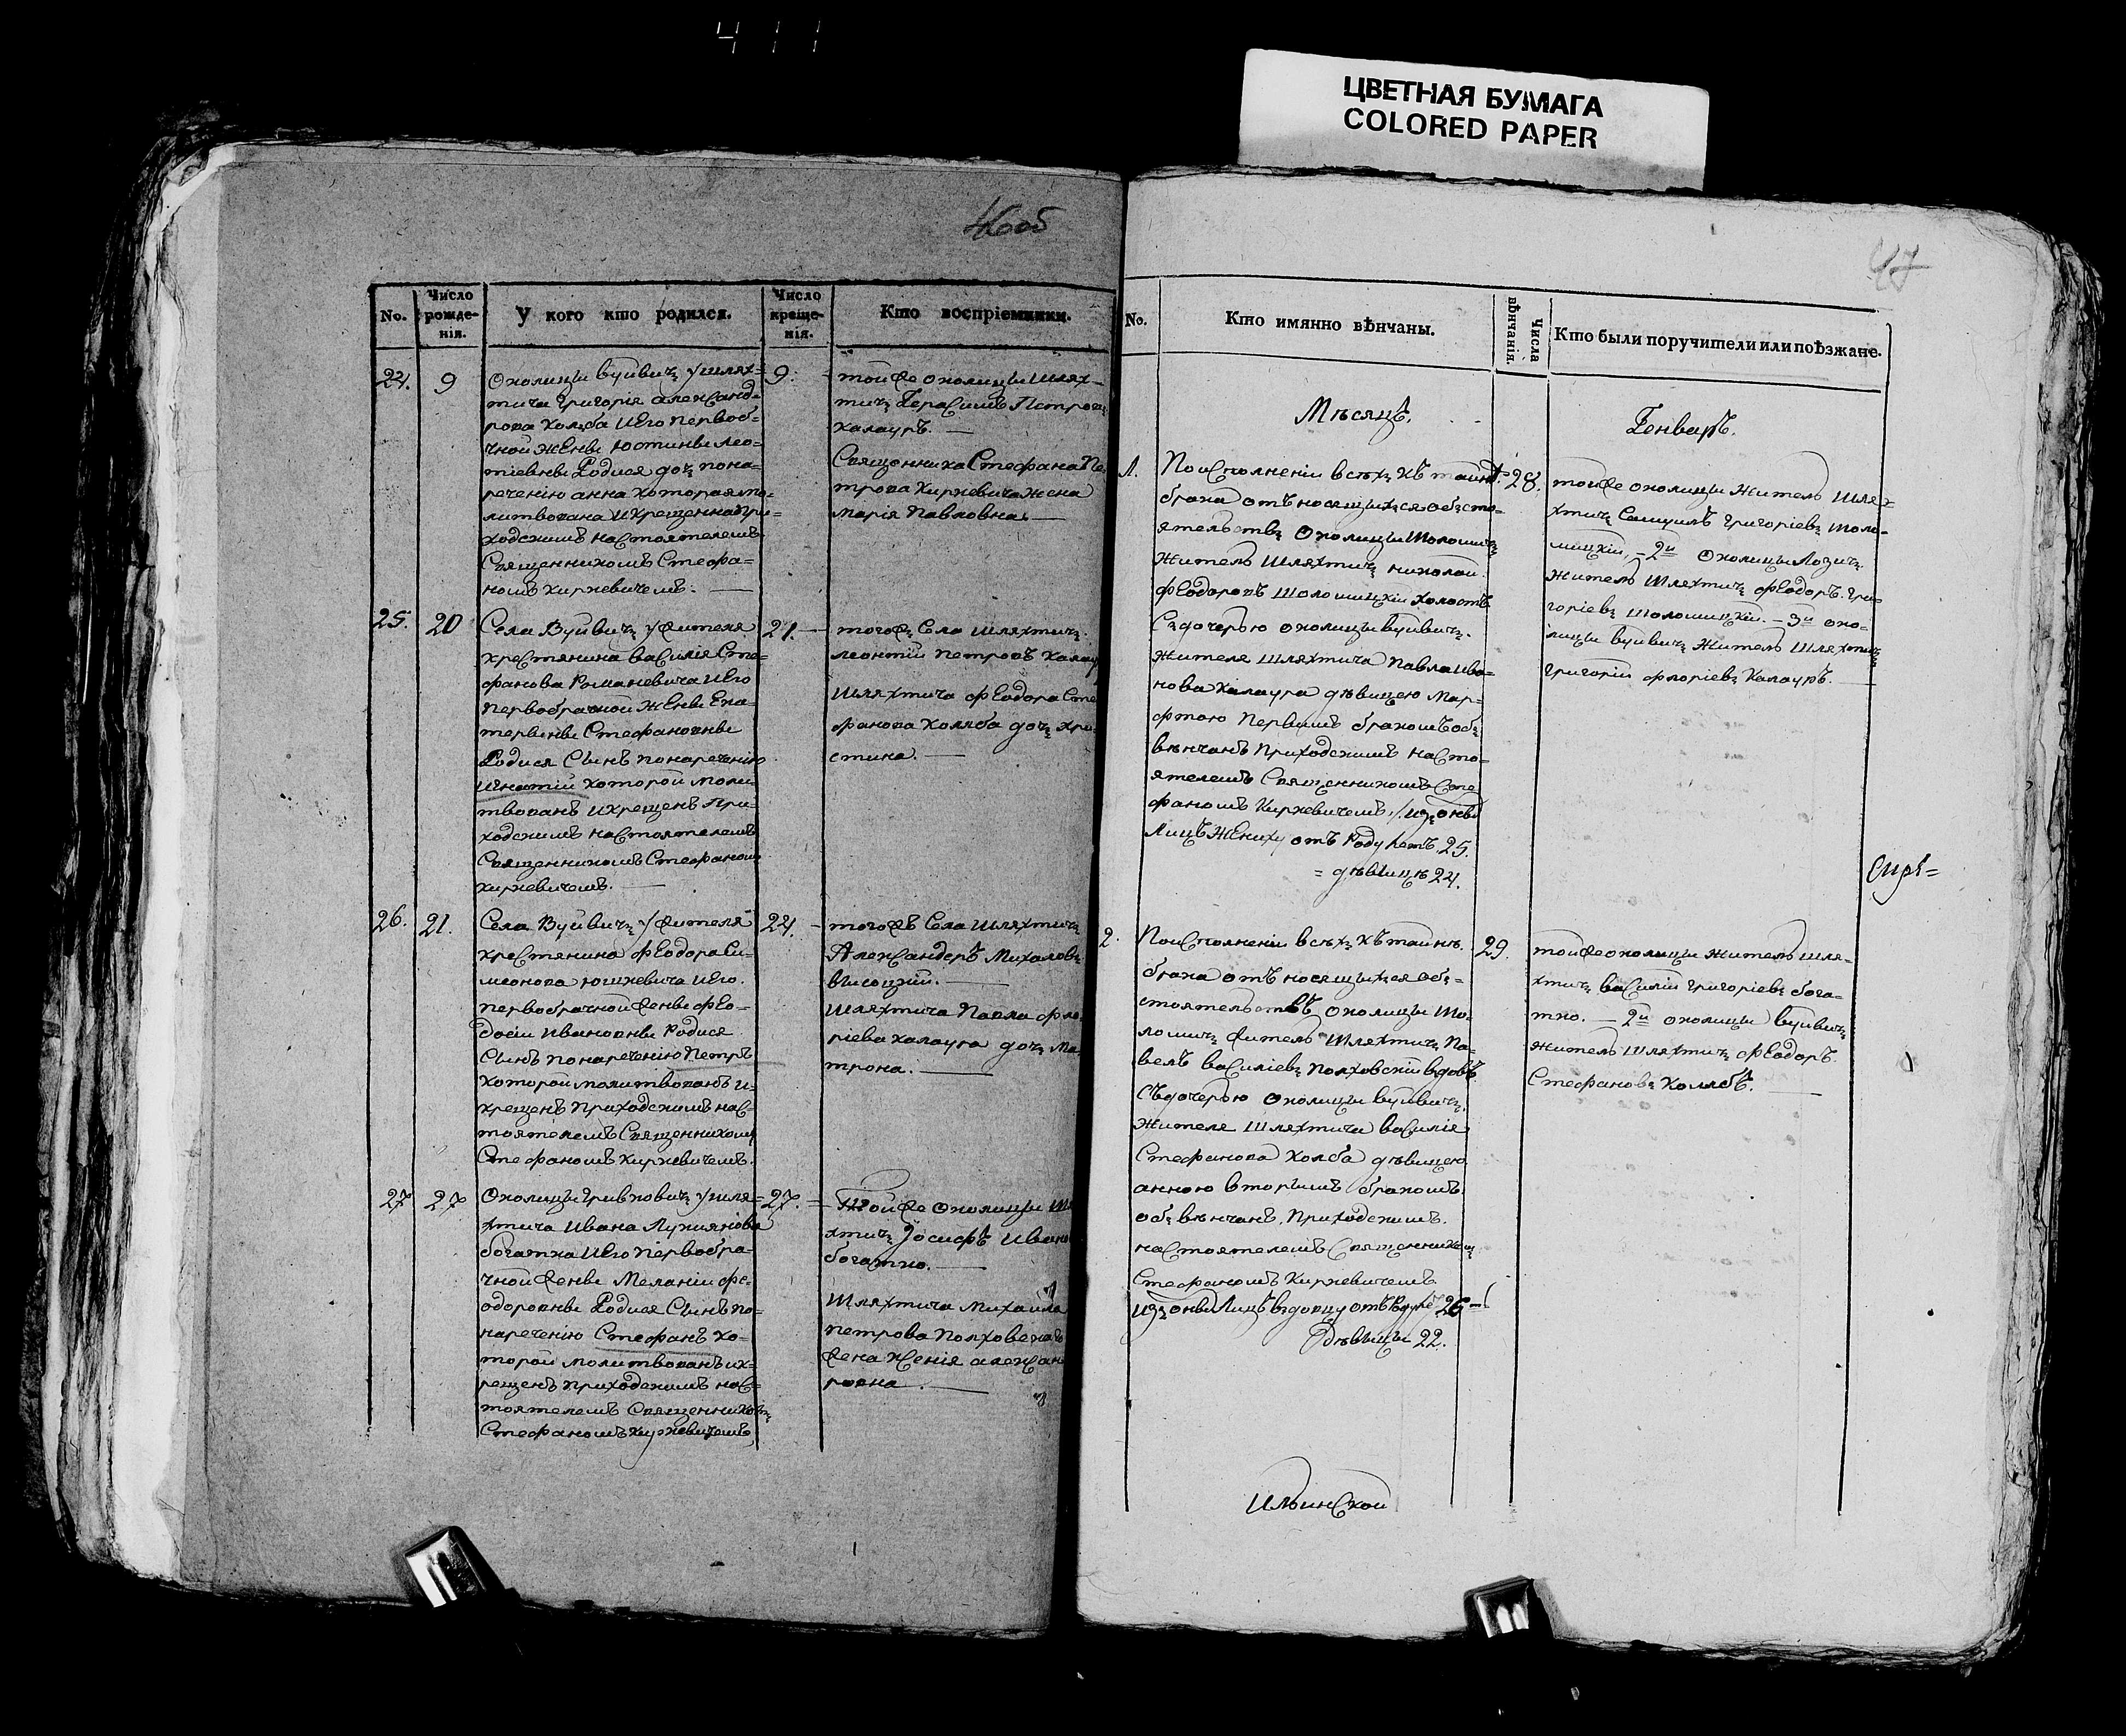 411
ЦВЕТНАЯ БУМАГА
COLORED PAPER
46 об
No.
Число рожденія.
У кого кто родился.
Число крещенія.
Кто воспріемники.
24.
9
Околицы вуйвичъ у шлях=
тича григорія александ=
рова холяба и его первоб=
чной жены юстины лео=
тіевны Родися дочъ пона=
реченію анна которая мо=
литвована и крещенна при=
ходскимъ настоятелемъ
Священникомъ Стефа=
номъ киркевичемъ.
9.
тойже околицы шлях=
тичъ Герасимъ Петровъ
калауръ. —
Священника Стефана Пе
трова киркевича жена
марія Павловна. —
25.
20
Села Вуйвичъ у жителя
крестянина василія Сте=
фанова Романевича и его
первобрачной жены Ека=
терины Стефановны
Родися Сынъ понареченію
игнатій которой моли
твованъ и крещенъ При=
ходскимъ настоятелемъ
Священникомъ Стефаномъ
киркевичемъ. —
21. —
тогожъ Села шляхтичъ
леонтій петровъ калау
шляхтича феодора Сте
фанова холяба дочъ хри
стина. —
26.
21.
Села Вуйвичъ у жителя
крестянина феодора Си=
меонова юшкевича и его
первобрачной жены фео=
досіи ивановны Родися
Сынъ понареченію петръ
которой молитвованъ и=
крещенъ приходскимъ нас=
тоятелемъ Священникомъ
Стефаномъ киркевичемъ.
24. —
тогожъ Села шляхтичъ
Александеръ Михаловъ
высоцкій. —
шляхтича Павла фло
ріева калаура дочъ ма
трона. —
27
27
Околицы гривковичъ у шля=
хтича ивана лукиянова
богатка и его первобра=
чной жены меланіи фе=
одоровны Родися Сынъ по=
нареченію Стефанъ ко=
торой молитвованъ ик=
рещенъ приходскимъ нас=
тоятелемъ Священникомъ
Стефаномъ киркевичемъ
27. =
Тойже околицы шл
хтичъ іосифъ ивано
богатко. —
Шляхтича михаила
петрова
жена ксенія алексан
ровна. —
47
No.
Кто имянно вѣнчаны.
Числа вѣнчанія.
Кто были поручители или поѣзжане.
Мѣсяцъ.
Генварь.
1.
По исполненіи всѣхъ къ таинѣ
брака отъносящыхся объсто=
ятельствъ околицы шоломичъ
житель шляхтичъ николай
феодоровъ шоломицкій холостъ
Съ дочерью околицы вуйвичъ.
жителя шляхтича павла ива=
нова калаура дѣвицею мар=
фтою первымъ бракомъ об=
вѣнчанъ Приходскимъ насто=
ятелемъ Священникомъ Сте
фаномъ киркевичемъ. / изъ оны
лицъ жениху отъ Роду летъ 25.
= дѣвицѣ 24.
28.
тойже околицы житель шля=
хтичъ Самуилъ григоріевъ шоло=
мицкій, — 2й околицы лозичъ
житель шляхтичъ феодоръ гри=
горіевъ шоломицкій. — 3й око=
лицы вуйвичъ житель шляхтичъ
григорій флоріевъ калауръ. —
2.
По исполненіи всѣхъ къ таинѣ
брака отъносящыхся объ=
стоятельствъ околицы шо=
ломичъ житель шляхтичъ па=
велъ василіевъ полховскій вдовъ
Съ дочерью околицы вуйвичъ
жителя шляхтича василія
Стефанова холяба дѣвицею
анною вторымъ бракомъ
объвѣнчанъ, Приходскимъ
настоятелемъ Священникомъ
Стефаномъ киркевичемъ
изъ оны лицъ вдовцу отъ Роду 26 —
Дѣвицы 22.
29.
тойже околицы житель шля=
хтичъ василій григоріевъ бога=
тко. — 2й околицы вуйвичъ
житель шляхтичъ феодоръ
Стефановъ холябъ. —
Ильинской